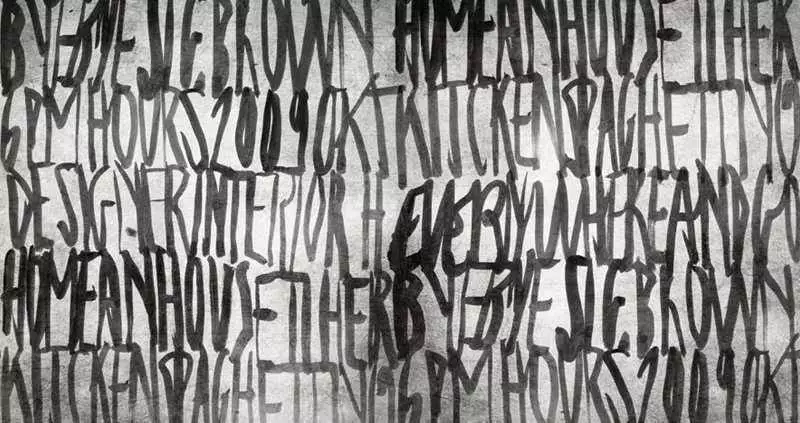 BYEBYE SIE BROWN HOME AN HOUSE ETHER
5 PM HOURS 2009 OKT KITCKEN SPAGHETTI YO
DESIGNER INTERIOR H EVERYWHERE AND GO
HOME AN HOUSE ETHER BYEBYE SIE BROWN
KITCKEN SPAGHETTI YO 5 PM HOURS 2009 OKT